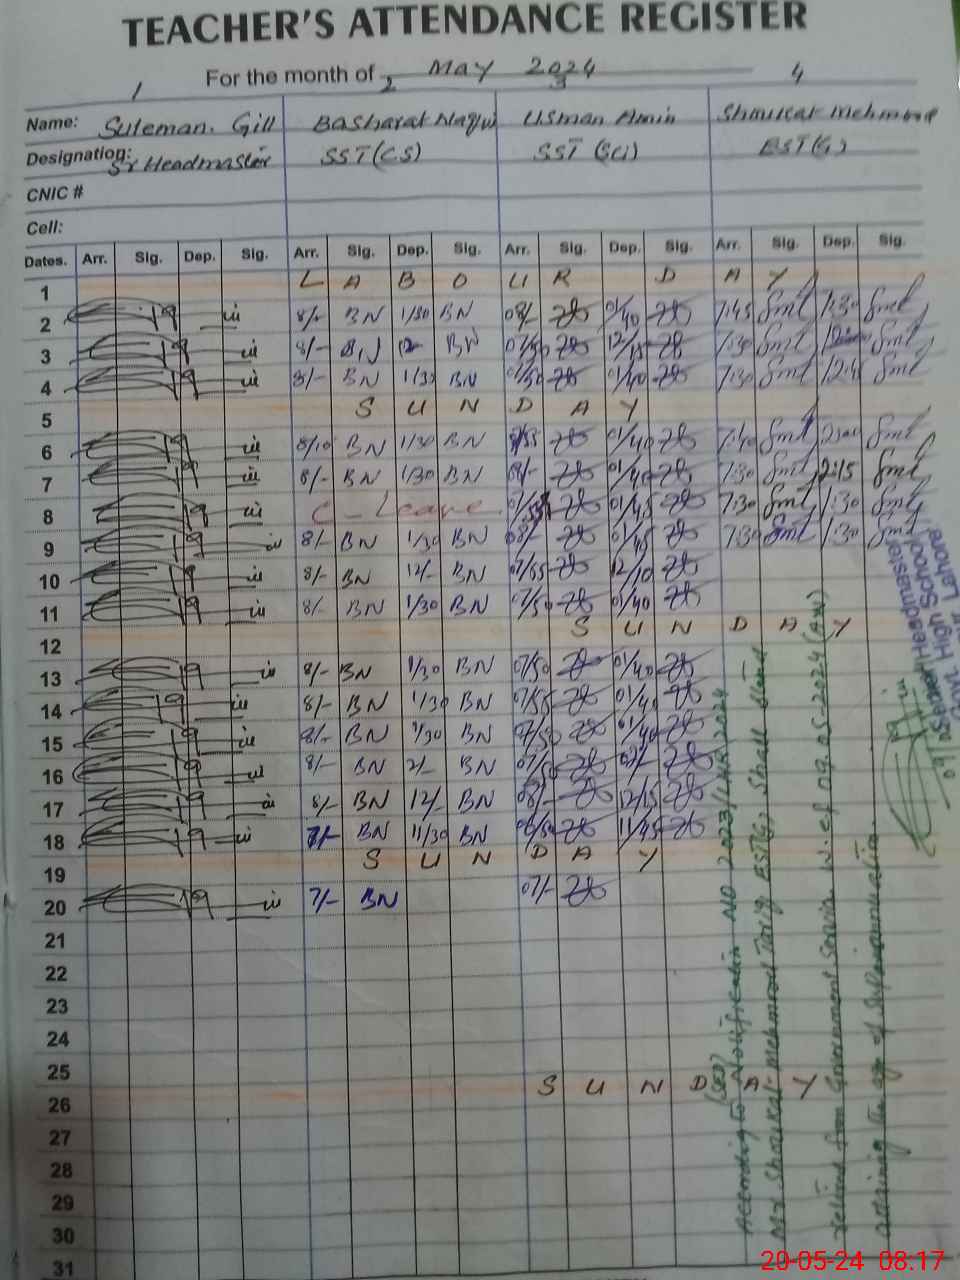 TEACHER'S ATTENDANCE REGISTER
For the month of May 2024
1 2 3 4
Name: Suleman. Gill Basharat Naqvi Usman Amin Shaukat Mehmood
Designation: Sr Headmaster SST (CS) SST (Sci) EST (G)
CNIC #
Cell:
Dates. Arr. Sig. Dep. Sig. Arr. Sig. Dep. Sig. Arr. Sig. Dep. Sig. Arr. Sig. Dep. Sig.
1 L A B O U R D A Y
2 8/- BN 1/30 BN 08/- 01/40 7:45 1:30
3 8/- BN 12 BN 07/50 12/15 7:30
4 8/- BN 1/30 BN 01/40 7:30
5 S U N D A Y
6 8/10 BN 1/30 BN 01/40 7:40
7 8/- BN 1/30 BN 08/- 01/40 7:30 2:15
8 C-Leave 01/45 7:30 1:30
9 8/- BN 1/30 BN 08/- 01/45 7:30 1:30
10 8/- BN 12/- BN 07/55 12/10
11 8/- BN 1/30 BN 07/50 01/40
12 S U N D A Y
13 8/- BN 1/30 BN 07/50 01/40
14 8/- BN 1/30 BN 07/55
15 8/- BN 1/30 BN 07/50 01/40
16 8/- BN 2/- BN 02/-
17 8/- BN 12/- BN 08/- 12/15
18 7/- BN 11/30 BN 06/50 11/45
19 S U N D A Y
20 7/- BN 07/-
21
22
23
24
25
26 S U N D A Y
27
28
29
30
31
According to Notification No (SED) 2023
Mr Shaukat Mehmood Tariq EST(G), Shall stand
retired from Government Service w.e.f 09.05-2024 (A.N)
attaining the age of Superannuation.
Senior Headmaster
Govt. High School
Lahore
20-05-24 08:17